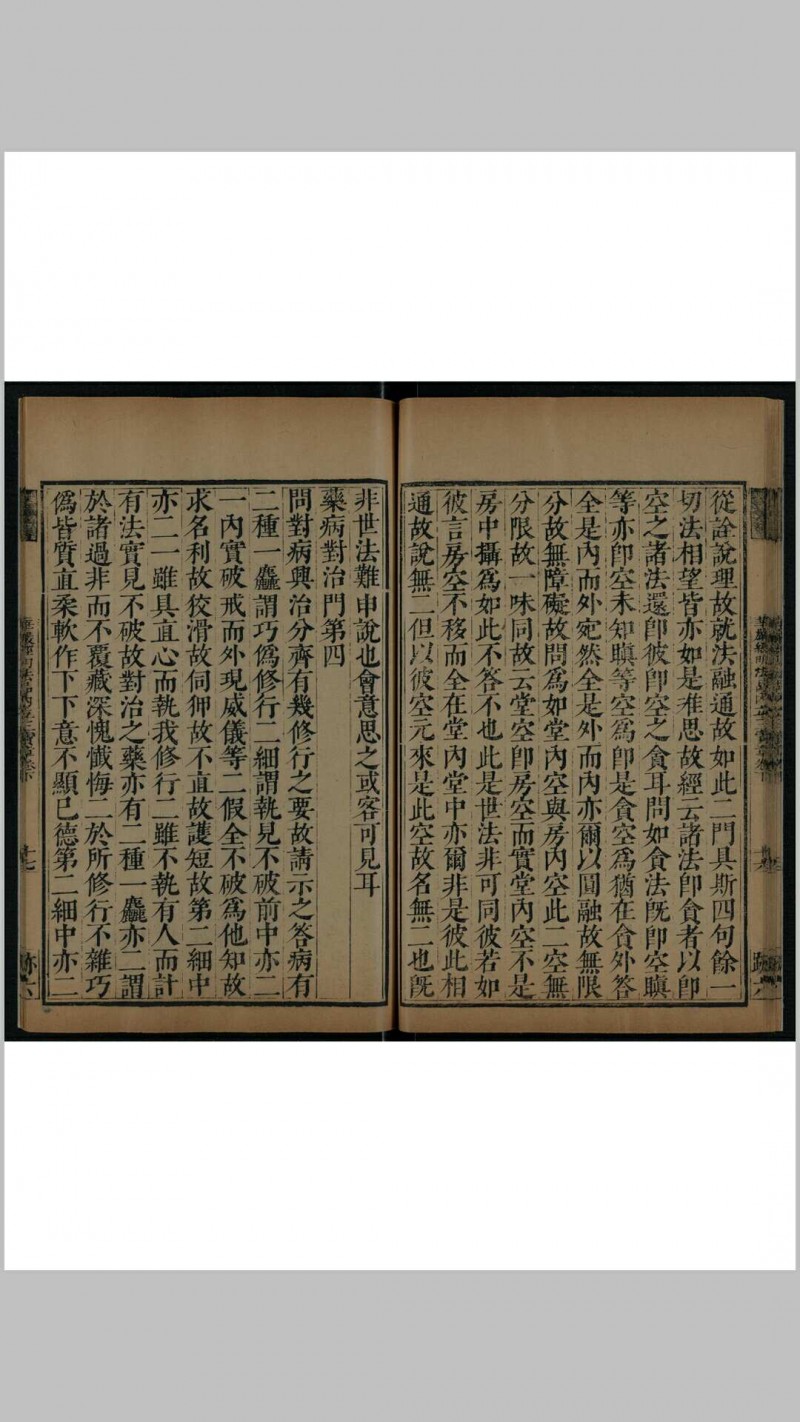 從詮說理故就法融通故如此二門具斯四句餘一
切法相望皆亦如是准思故經云諸法卽貪者以卽
空之諸法還卽彼卽空之貪耳問如貪法旣卽空瞋
等亦卽空未知瞋等空爲卽是貪空爲猶在貪外答
全是內而外宛然全是外而內亦爾以圓融故無限
分故無障礙故問爲如堂內空與房內空此二空無
分限故一味同故云堂空卽房空而實堂內空不是
房中攝爲如此不答不也此是世法非可同彼若如
彼言房空不移而全在堂內堂中亦爾非是彼此相
通故說無二但以彼空元來是此空故名無二也旣
非世法難申說也會意思之或容可見耳
藥病對治門第四
問對病興治分齊有幾修行之要故請示之答病有
二種一麤謂巧爲修行二細謂執見不破前中亦二
一內實破戒而外現威儀等二假全不破爲他知故
求名利故狡滑故伺狎故不直故護短故第二細中
亦二一雖具直心而執我修行二雖不執有人而計
有法實見不破故對治之藥亦有二種一麤亦二謂
於諸過非而不覆藏深愧懺悔二於所修行不雜巧
僞皆質直柔軟作下下意不顯已德第二細中亦二
十七